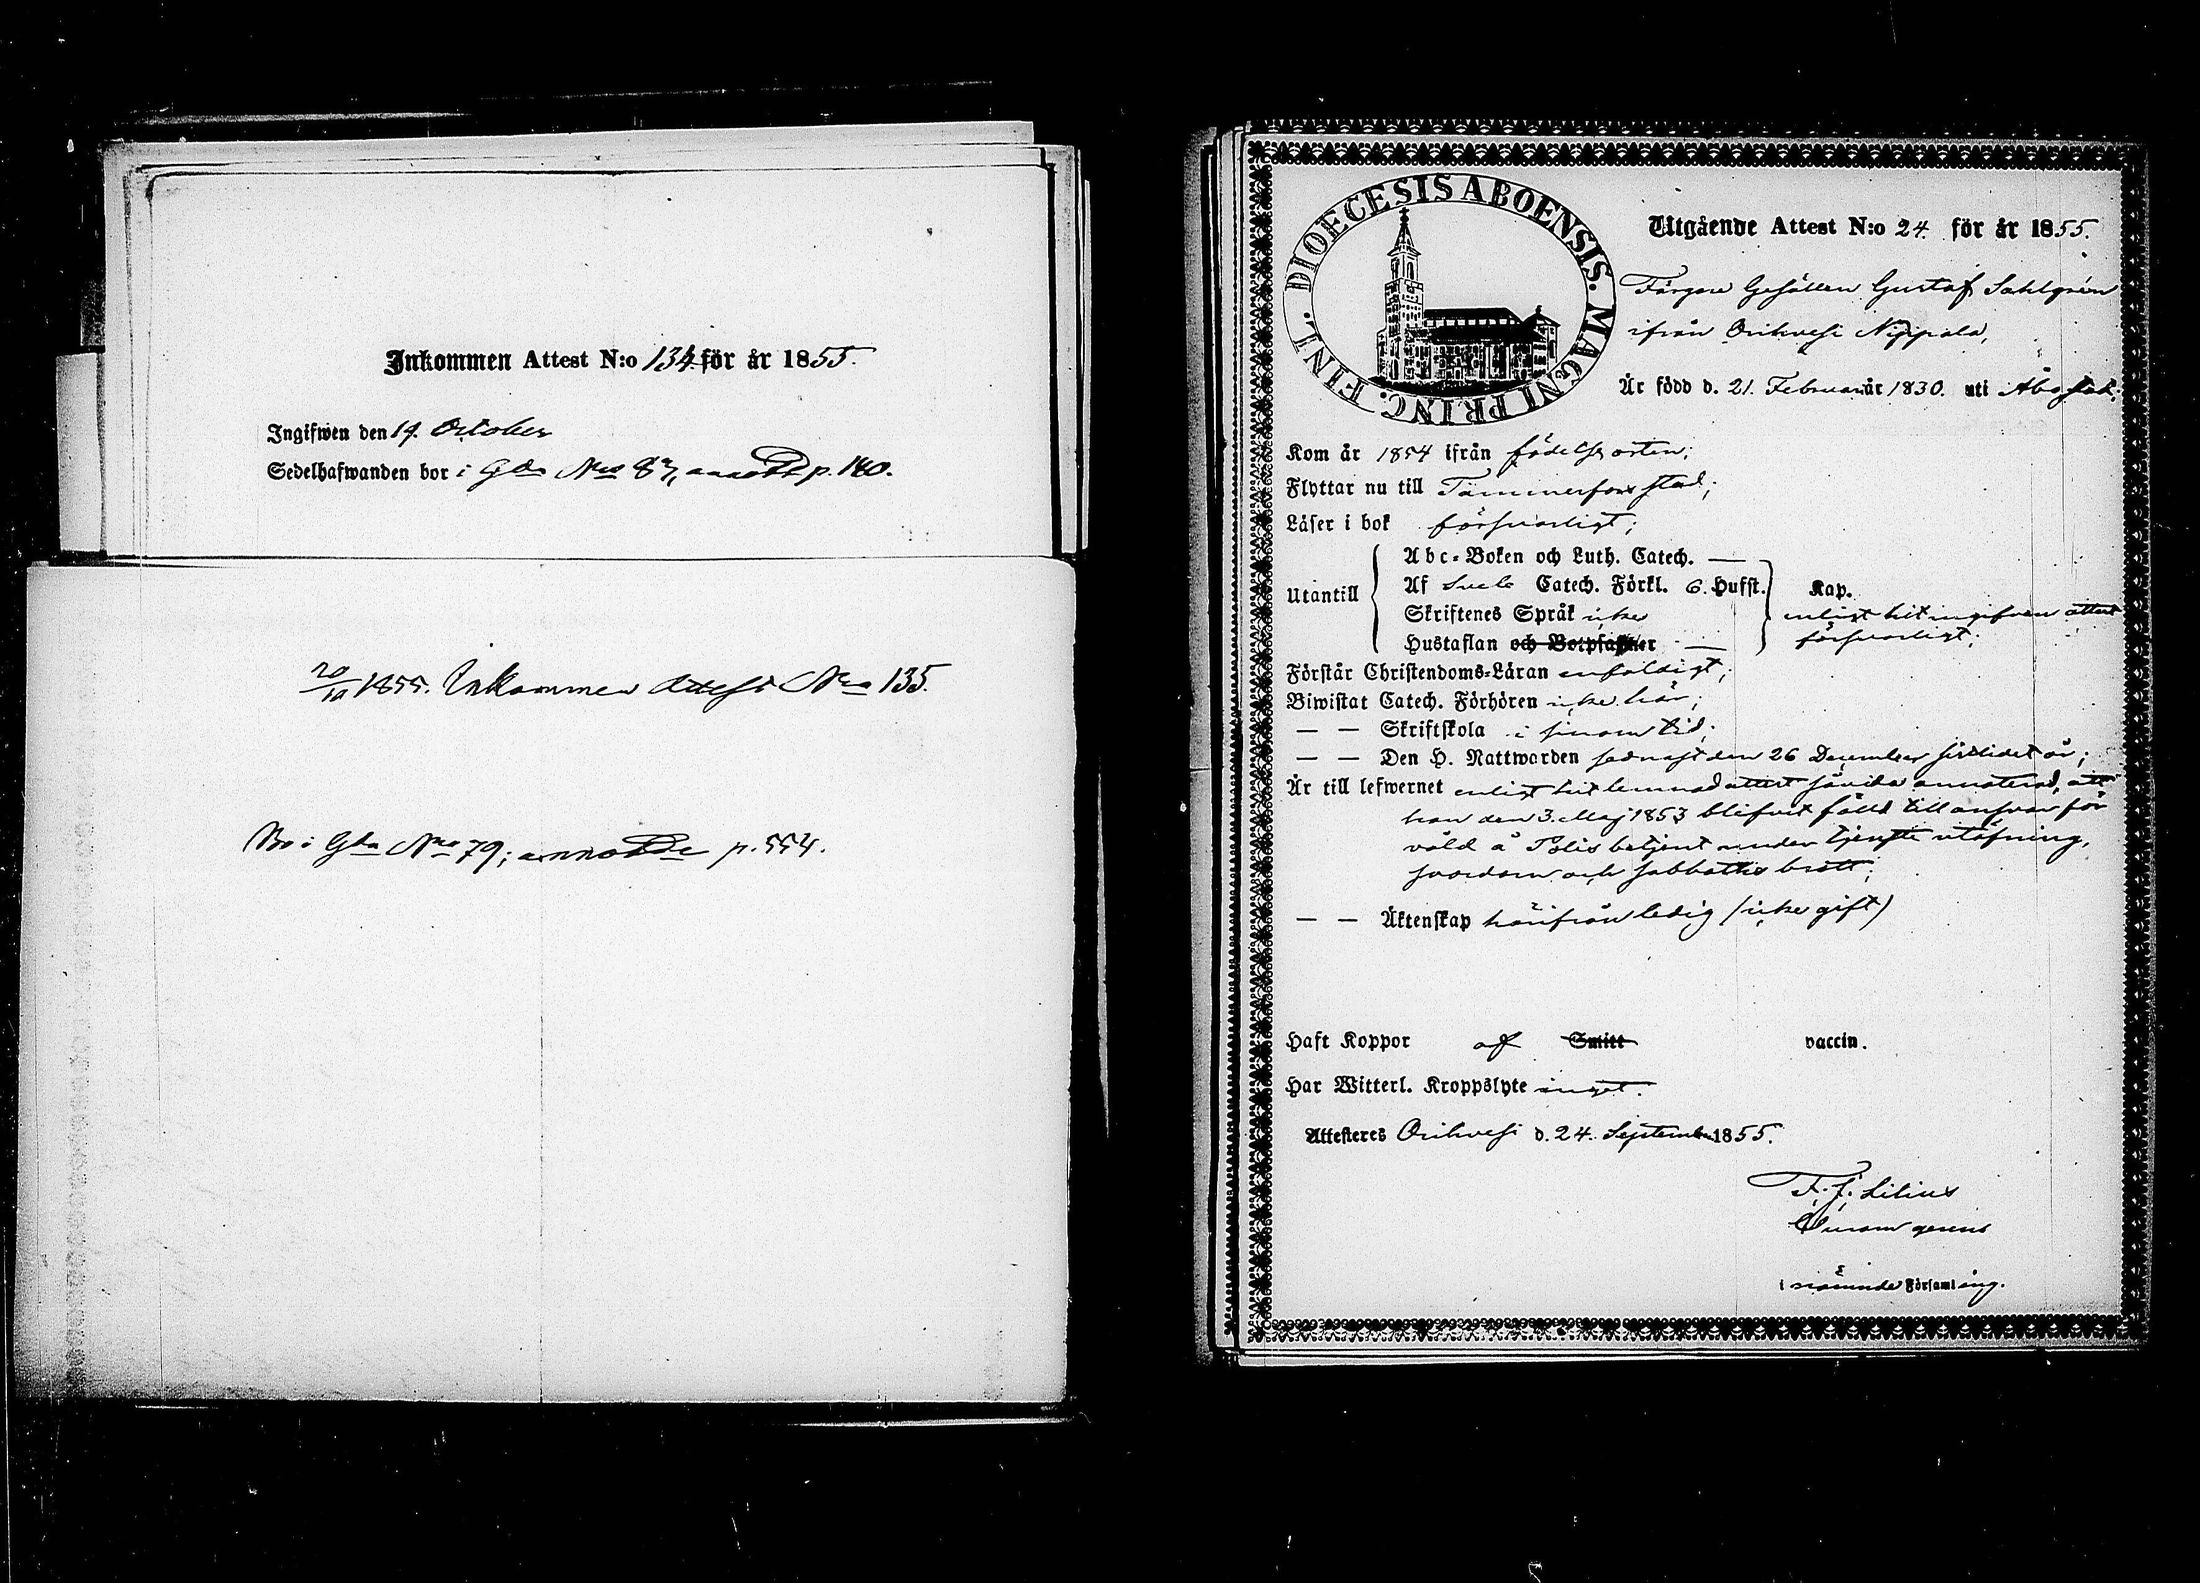 Inkommen Attest N:o 134 för år 1855.
Ingifwen den 19. October
Sedelhafwanden bor i Gdn Nro 87, annott p. 140.
20/10 1855. Inkommen Attest Nro 135.
Bo i Gdn Nro 79; annotde p. 554.
DIOECESIS ABOENSIS. MAGNI PRINC. FINL.
Utgående Attest N:o 24. för år 1855.
Färgare Gesällen Gustaf Sahlgrén
ifrån Orihvesi Nippala,
Är född d. 21. Februari år 1830. uti Åbo stad;
Kom år 1854 ifrån födelse orten;
Flyttar nu till Tammerfors stad;
Läser i bok försvarligt;
Utantill
Abc-Boken och Luth. Catech. —
Af Sveb. Catech. Förkl. 6. Hufst. Kap.
Skriftenes Språk icke enligt hit ingifven attest
Hustaflan och Botpsalmer — försvarligt;
Förstår Christendoms-Läran enfaldigt;
Biwistat Catech. Förhören icke här;
— — Skriftskola i sinom tid;
— — Den H. Nattwarden sednast den 26 December förlidet år;
Är till lefwernet enligt hit lemnad attest såvida annoterad, att
han den 3. Maj 1853 blifvit fälld till ansvar för
våld å Polisbetjent under tjenste utöfning,
svordom och sabbaths brott;
— — Äktenskap härifrån ledig (icke gift)
Haft Koppor af Smitt vaccin.
Har Witterl. Kroppslyte inget.
Attesteres Orihvesi d. 24. September 1855.
F. J. Lilius
Curam gerens
i nämnde Församling.